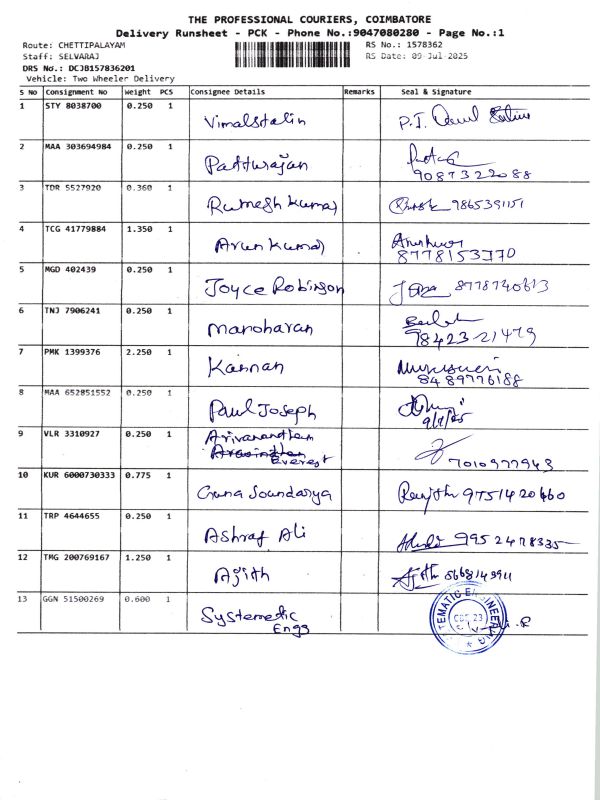 THE PROFESSIONAL COURIERS, COIMBATORE
Delivery Runsheet - PCK - Phone No.:9047080280 - Page No.:1
Route: CHETTIPALAYAM RS No.: 1578362
Staff: SELVARAJ RS Date: 09-Jul-2025
DRS No.: DCJB157836201
Vehicle: Two Wheeler Delivery
S No Consignment No Weight PCS Consignee Details Remarks Seal & Signature
1 STY 8038700 0.250 1 Vimalstalin P.J.
2 MAA 303694984 0.250 1 Patturajan
9087322088
3 TDR 5527920 0.360 1 Rumesh kumar
4 TCG 41779884 1.350 1 Arun kumar
8778153770
5 MGD 402439 0.250 1 Joyce Robinson 8778740613
6 TNJ 7906241 0.250 1 manoharan
9842321479
7 PMK 1399376 2.250 1 Kannan
8489776188
8 MAA 652851552 0.250 1 Paul Joseph
9/7/25
9 VLR 3310927 0.250 1 Arivanandham
Everest
7010977943
10 KUR 6000730333 0.775 1 Guna Soundarya Renjith 9751420460
11 TRP 4644655 0.250 1 Ashraf Ali 9952478335
12 TMG 200769167 1.250 1 Ajith
13 GGN 51500269 0.600 1 Systematic
Engg